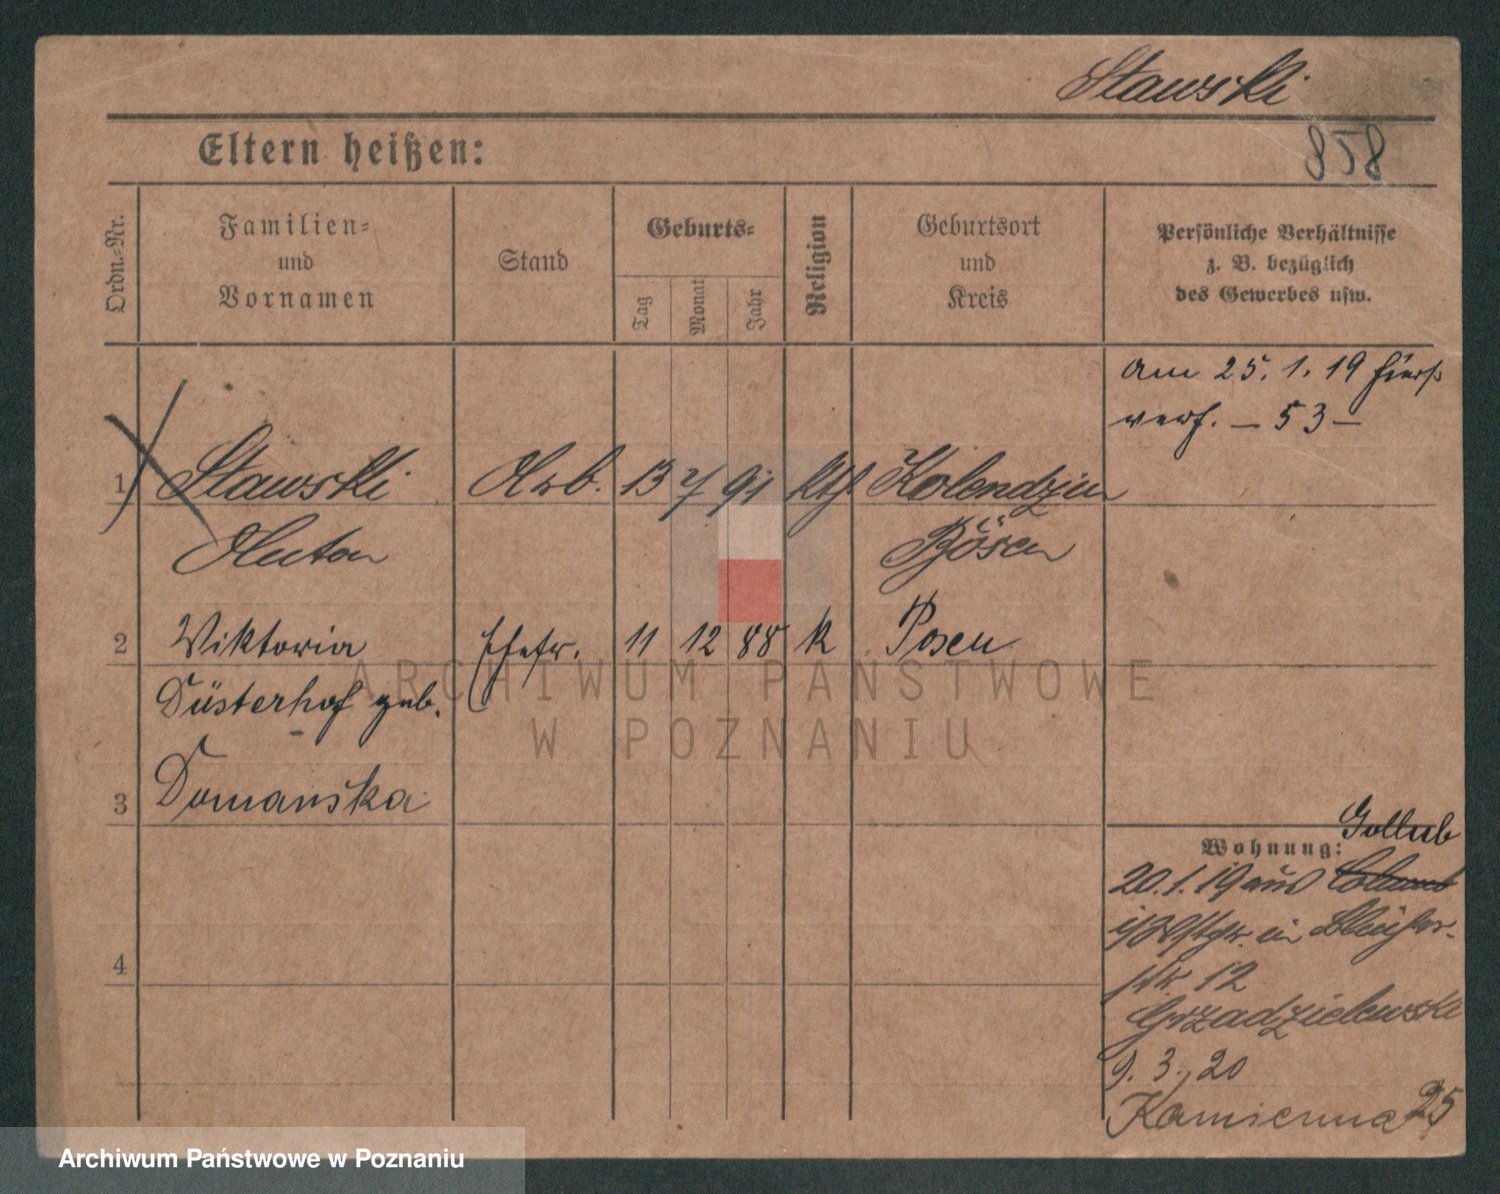 Stawski
Eltern heißen:
858
Ordn.-Nr.
Familien-
und
Vornamen
Stand
Geburts-
Tag
Monat
Jahr
Religion
Geburtsort
und
Kreis
Persönliche Verhältnisse
z. B. bezüglich
des Gewerbes usw.
am 25. 1. 19 hiers.
verh. – 53 –
1 Stawski Arb. 13 7 91 kth.
Anton
2 Viktoria Ehefr. 11 12 88 k Posen
Düsterhof geb.
3 Domanska
4
Wohnung: Gollub
20.1.19 aus
in
str. 12
Grzadzielewska
9. 3. 20
Kamienna 25
ARCHIWUM PAŃSTWOWE
W POZNANIU
Archiwum Państwowe w Poznaniu